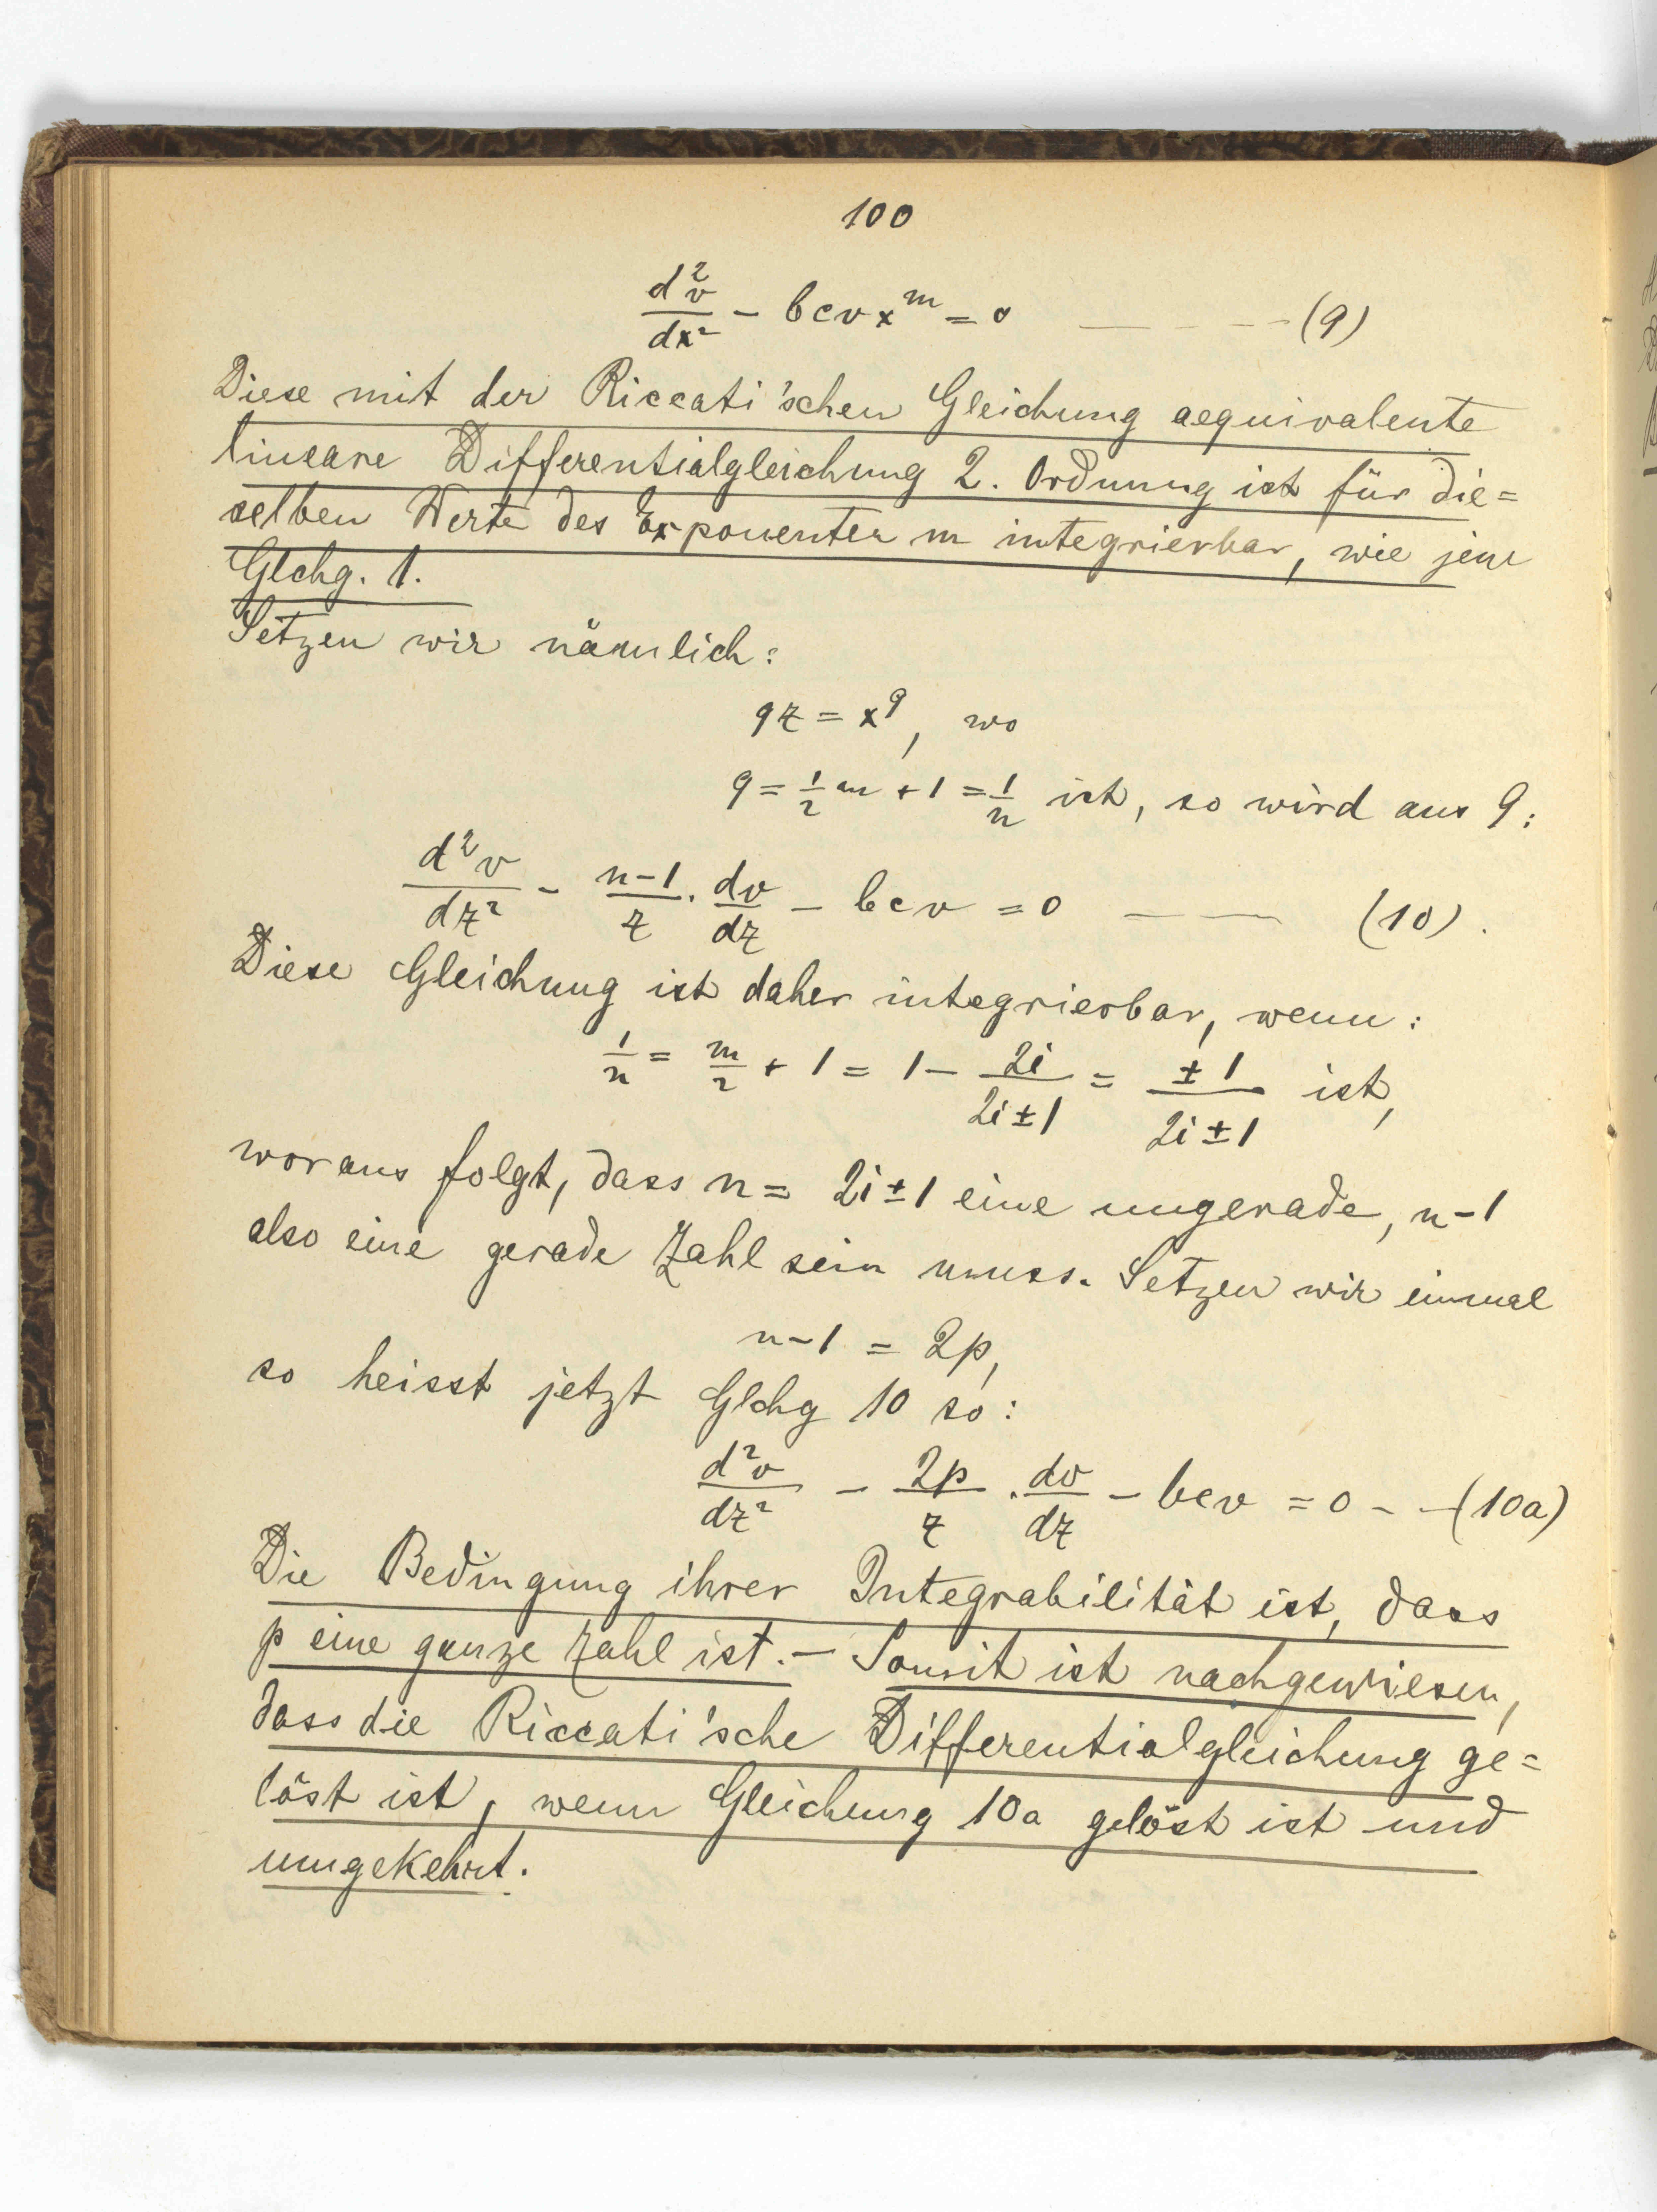 100
d²v/dx² - bcvx^m = 0 - - - - (9)
Diese mit der Riccati'schen Gleichung aequivalente
lineare Differentialgleichung 2. Ordnung ist für die=
selben Werte des Exponenten m integrierbar, wie jene
Glchg. 1.
Setzen wir nämlich:
qz = x^q, wo
q = 1/2 m + 1 = 1/n ist, so wird aus 9:
d²v/dz² - n-1/z · dv/dz - bcv = 0 - - (10).
Diese Gleichung ist daher integrierbar, wenn:
1/n = m/2 + 1 = 1 - 2i/2i±1 = ±1/2i±1 ist,
woraus folgt, dass n = 2i±1 eine ungerade, n-1
also eine gerade Zahl sein muss. Setzen wir einmal
n-1 = 2p,
so heisst jetzt Glchg 10 so:
d²v/dz² - 2p/z · dv/dz - bcv = 0 - - (10a)
Die Bedingung ihrer Integrabilität ist, dass
p eine ganze Zahl ist. - Somit ist nachgewiesen,
dass die Riccati'sche Differentialgleichung ge=
löst ist, wenn Gleichung 10a gelöst ist und
umgekehrt.